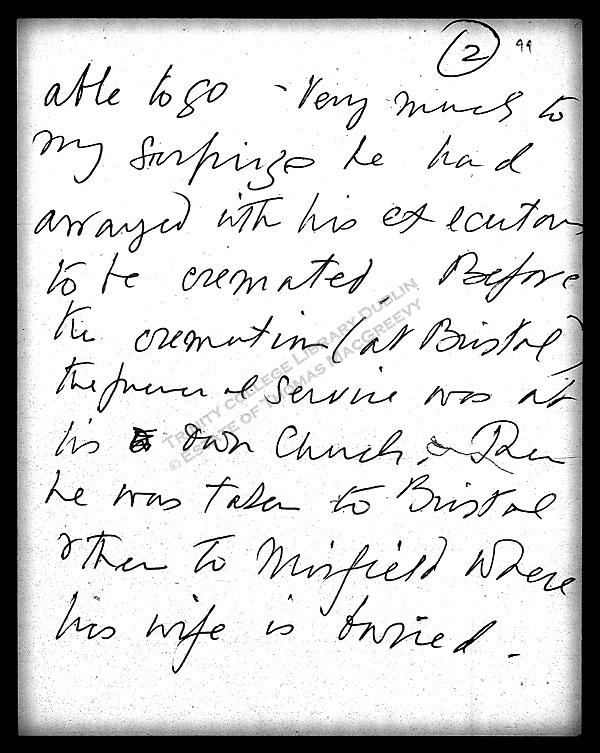 (2) 99
able to go - Very much to
my surprize he had
arrayed with his executors
to be cremated. Before
the cremation (at Bristol)
the funeral service was at
his own Church. Then
he was taken to Bristol
& then to Mirfield where
his wife is buried.
TRINITY COLLEGE LIBRARY DUBLIN
© ESTATE OF THOMAS MACGREEVY